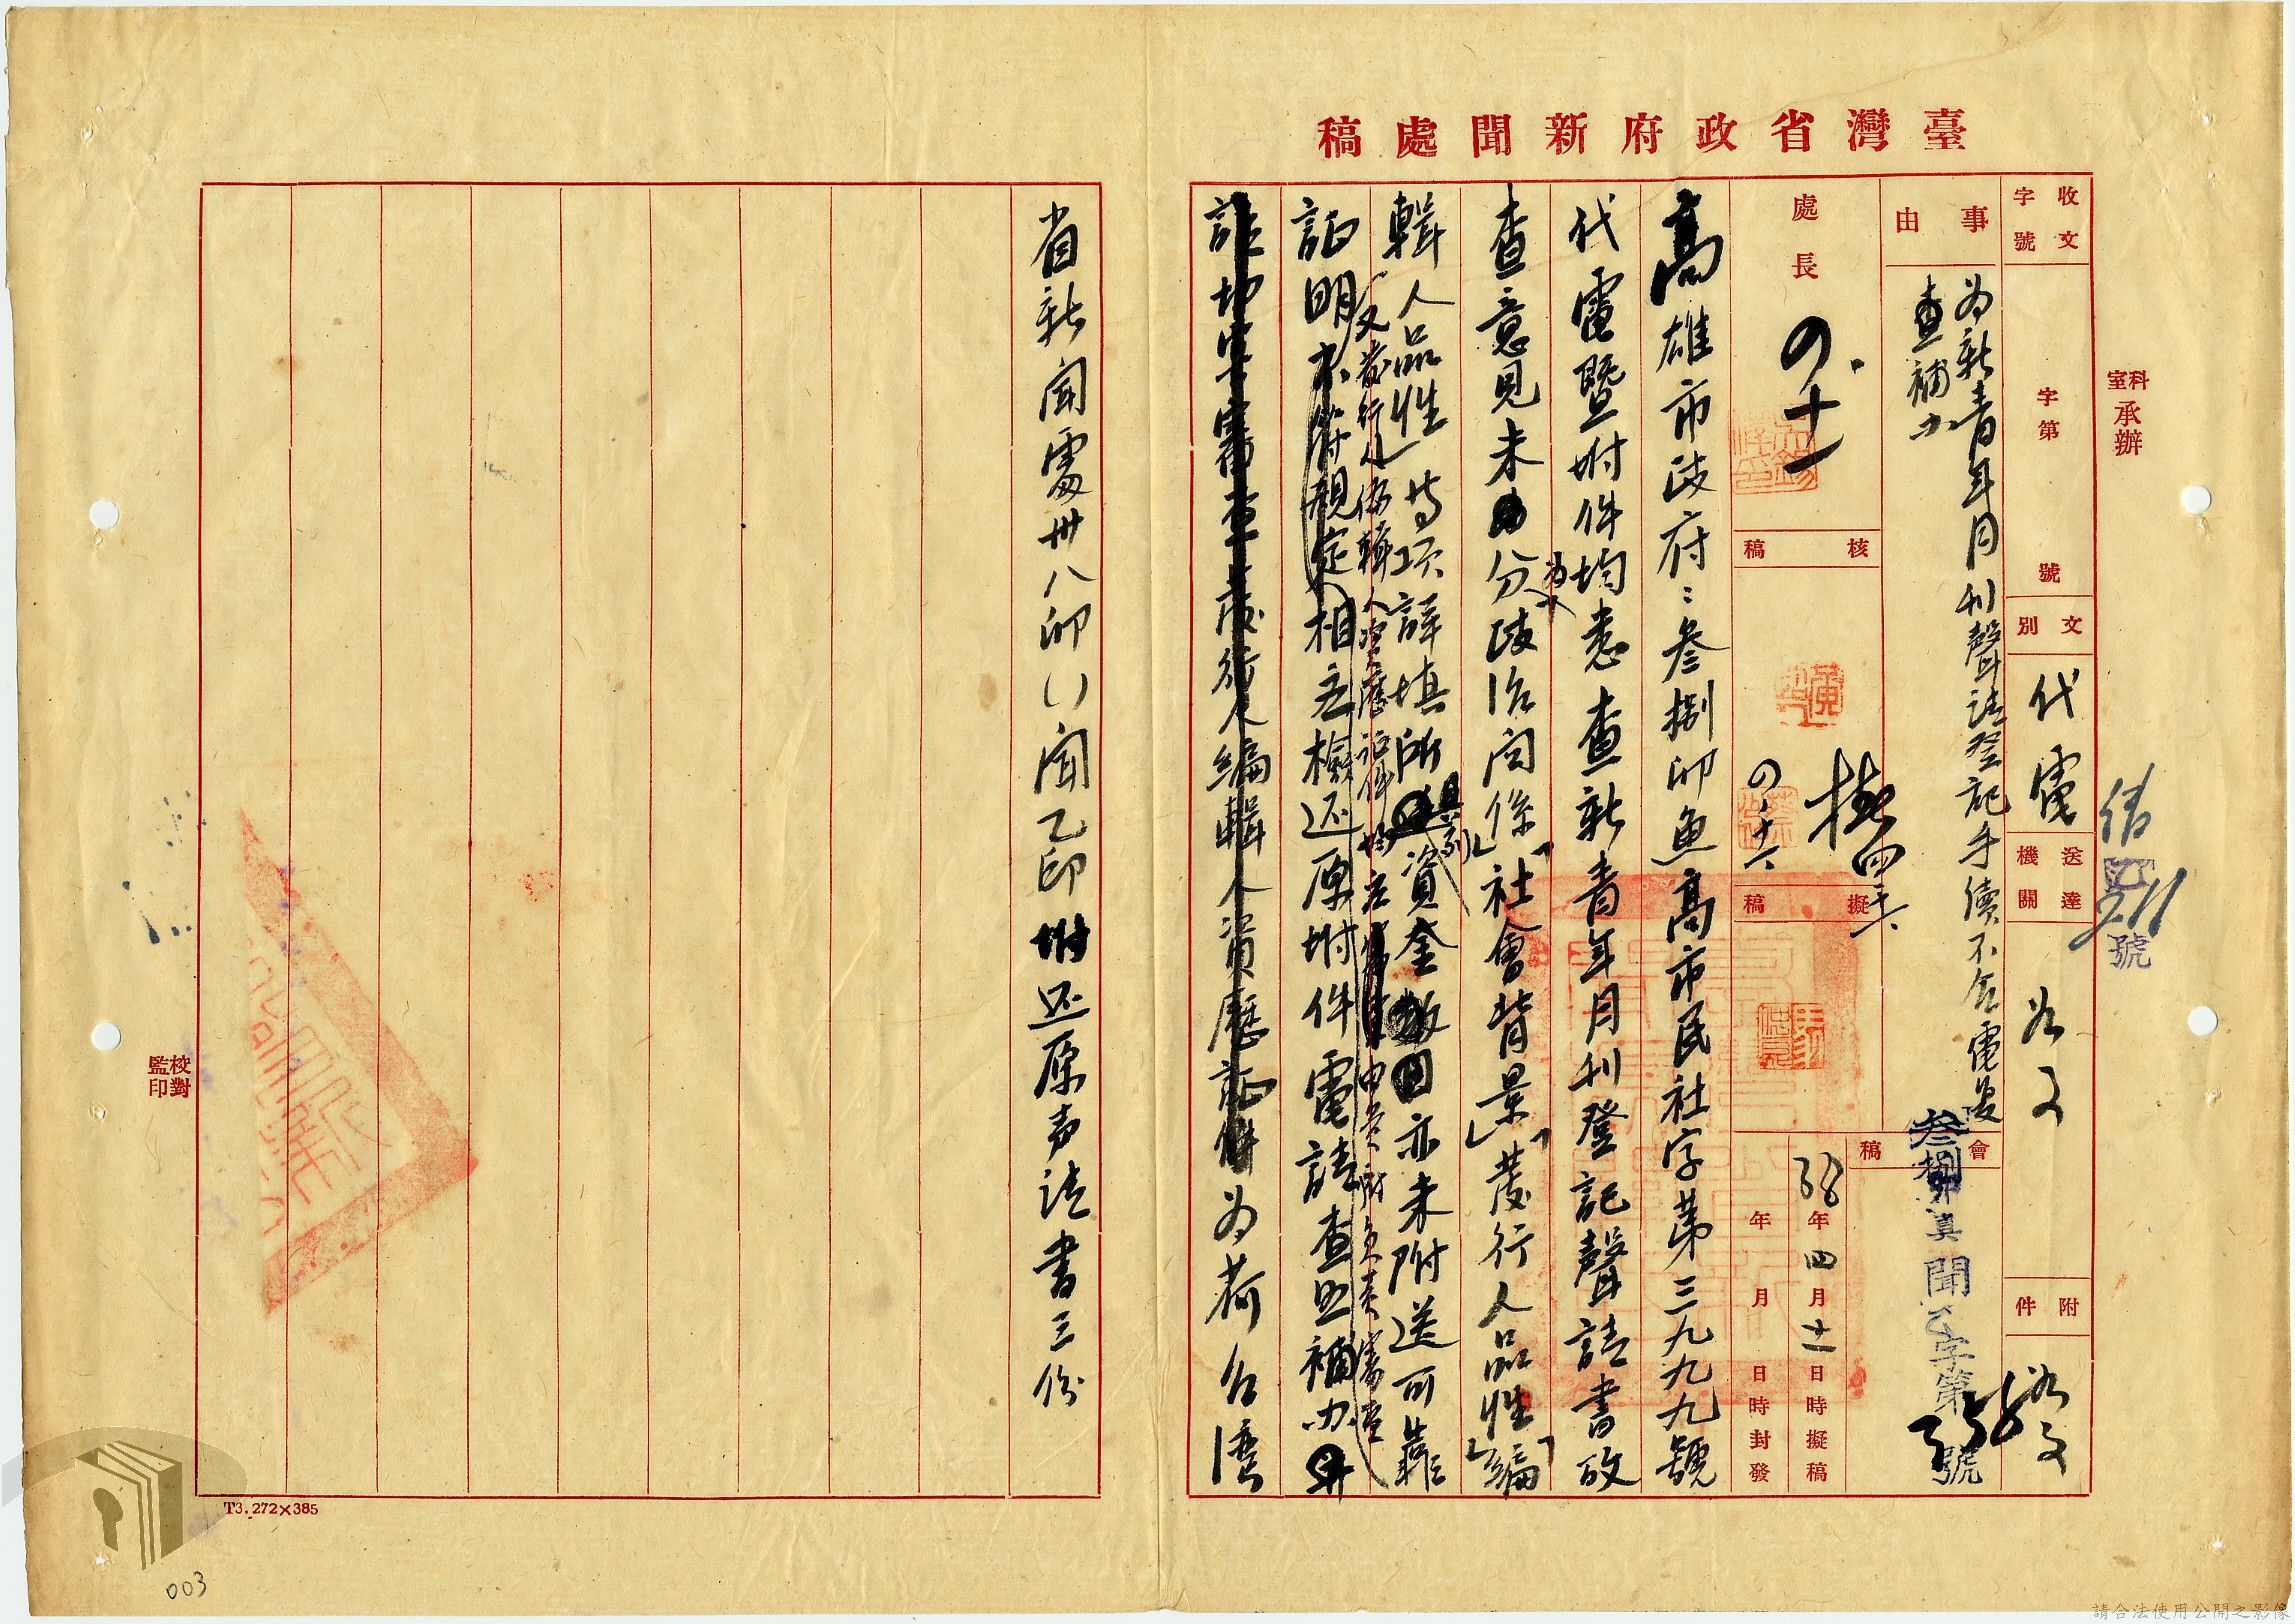 臺灣省政府新聞處稿
收文字號
字第 號
文別
代電
送達機關
如文
附件
如文
事由
為新青年月刊聲請登記手續不合電復
查補由
處長
四十一
核稿
擬稿
會稿
聞乙字第 號
38年四月十一日時擬稿
年 月 日時封發
科室承辦
號
高雄市政府:叁捌卯魚高市民社字第三九九九號
代電暨坿件均悉查新青年月刊登記聲請書攷
查意見未分為「政治関係」「社會背景」「發行人品性」「編
輯人品性」等項詳填所具資金亦未附送可靠
又發行人編輯人學歷証件均應由貴府負責審查
証明相應檢还原坿件電請查照補办
為荷台灣
省新聞處卅八卯()聞乙印坿还原声請書三份
校對
監印
T3.272×385
003
請合法使用公開之影像